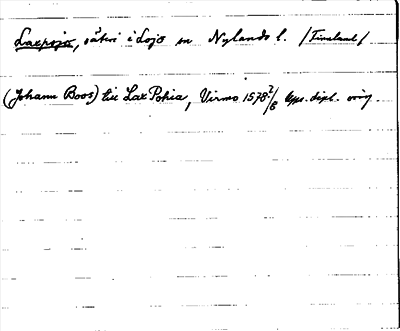 Laxpojo, säteri i Lojo sn Nylands l. /Finland/
(Johann Boos) till Lax Pohia, Virmo 1578 2/8 Upps. dipl. orig